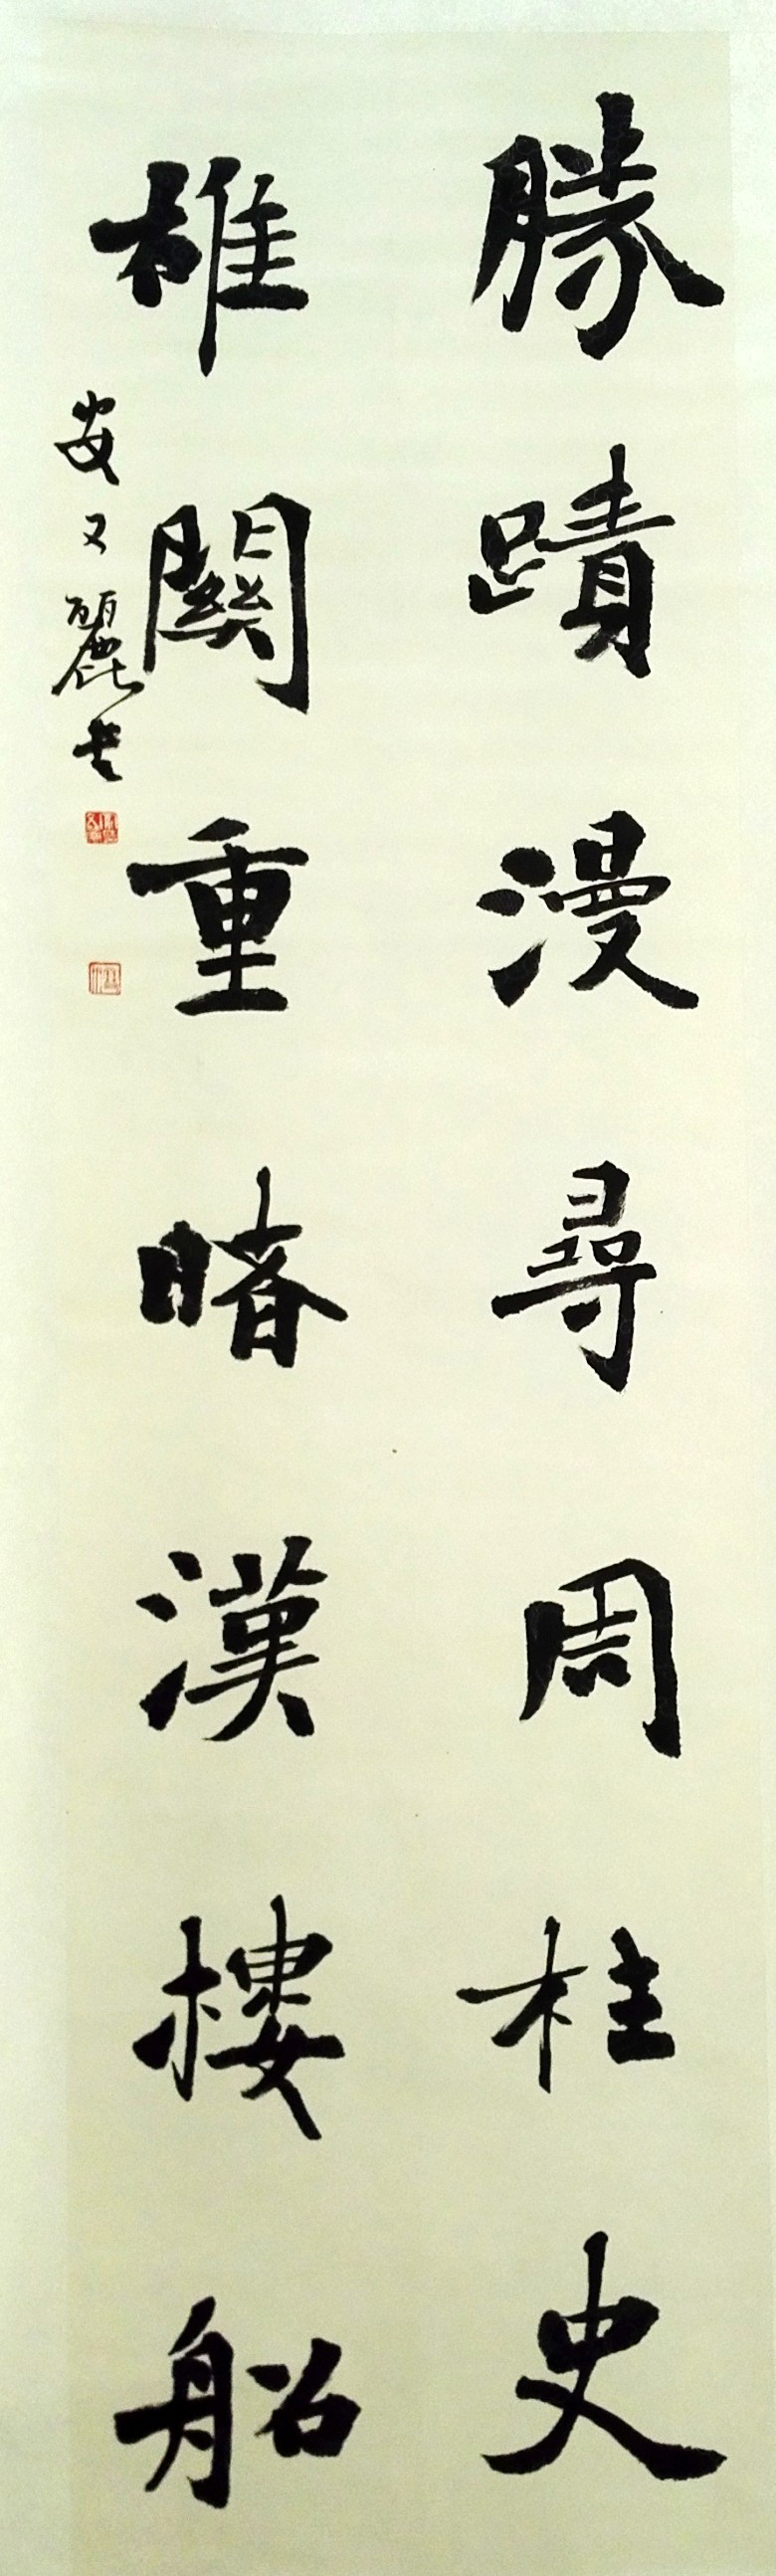 勝蹟漫尋周柱史
雄關重睹漢樓船
安又麗書